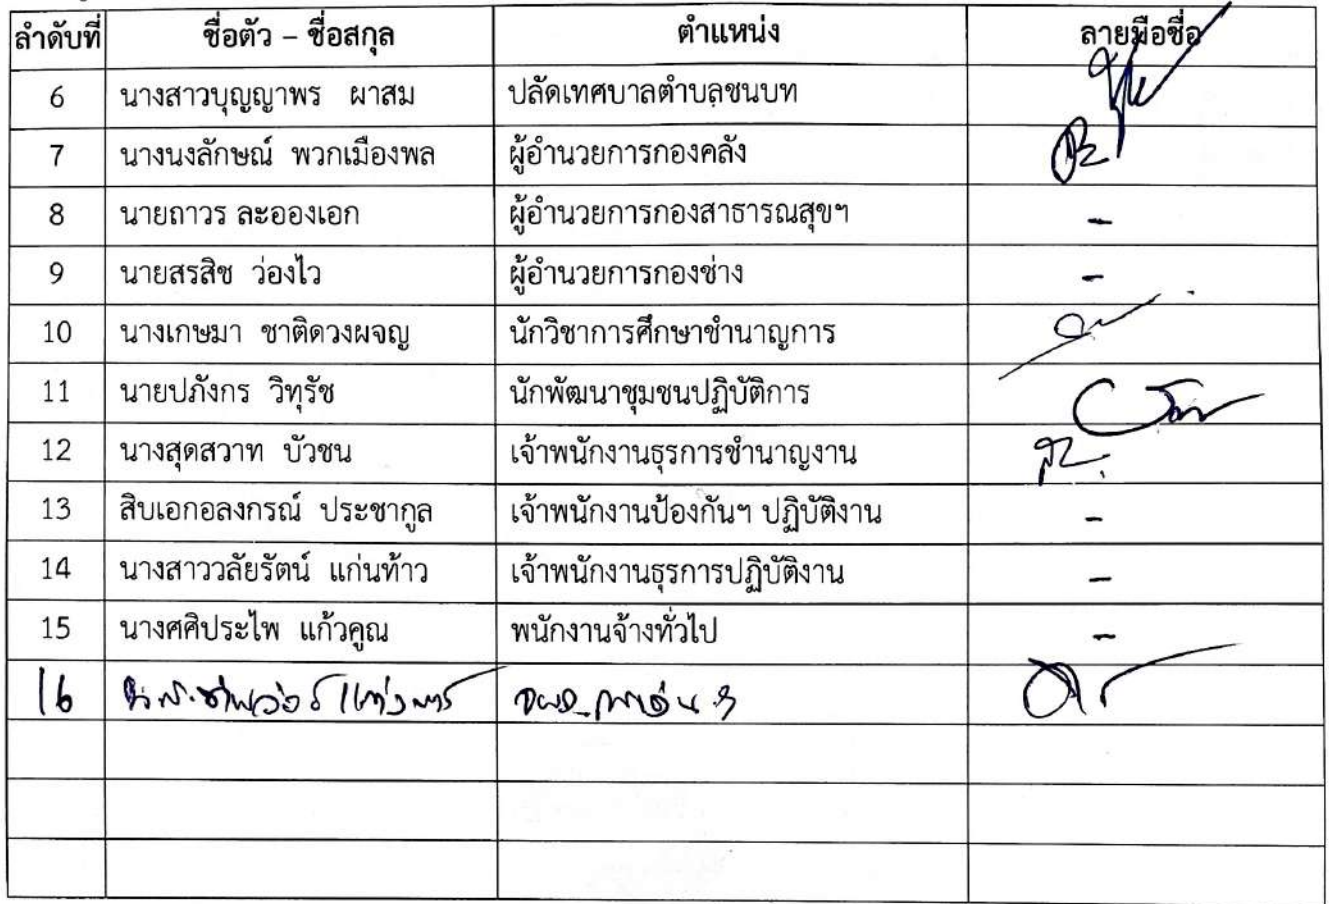 ลำดับที่ ชื่อตัว – ชื่อสกุล ตำแหน่ง ลายมือชื่อ
6 นางสาวบุญญาพร ผาสม ปลัดเทศบาลตำบลชนบท
7 นางนงลักษณ์ พวกเมืองพล ผู้อำนวยการกองคลัง
8 นายถาวร ละอองเอก ผู้อำนวยการกองสาธารณสุขฯ -
9 นายสรสิช ว่องไว ผู้อำนวยการกองช่าง -
10 นางเกษมา ชาติดวงผจญ นักวิชาการศึกษาชำนาญการ
11 นายปภังกร วิทุรัช นักพัฒนาชุมชนปฏิบัติการ
12 นางสุดสวาท บัวชน เจ้าพนักงานธุรการชำนาญงาน
13 สิบเอกอลงกรณ์ ประชากูล เจ้าพนักงานป้องกันฯ ปฏิบัติงาน -
14 นางสาววลัยรัตน์ แก่นท้าว เจ้าพนักงานธุรการปฏิบัติงาน -
15 นางศศิประไพ แก้วคูณ พนักงานจ้างทั่วไป -
16